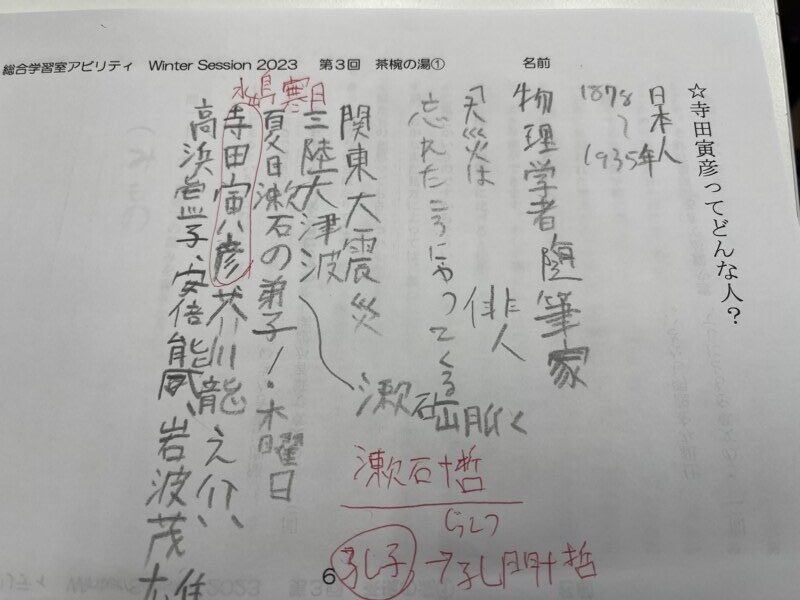 総合学習室アビリティ Winter Session 2023 第3回 茶椀の湯① 名前
☆寺田寅彦ってどんな人？
日本人
1878〜1935年
物理学者 随筆家
俳人
「天災は
忘れたころにやってくる
関東大震災
三陸大津波
夏目漱石の弟子！・木曜日
漱石山脈
水島寒月
寺田寅彦、芥川龍之介、
高浜虚子、安倍能成、岩波茂雄
漱石十哲
じってつ
孔子→孔門十哲
6